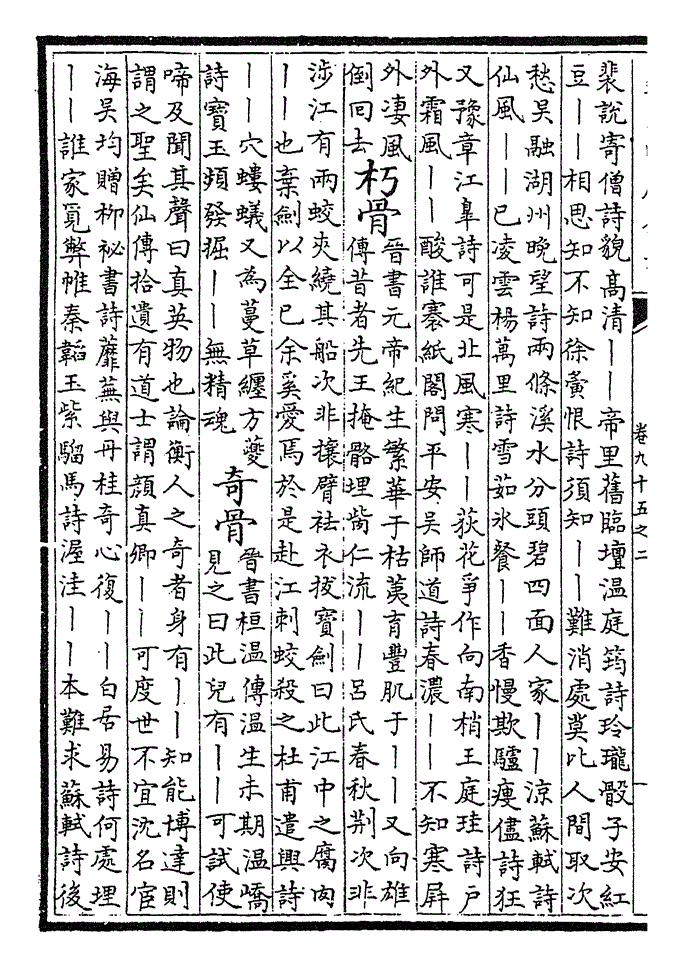 裴說寄僧詩貌髙清丨丨帝里舊臨壇温庭筠詩玲瓏骰子安紅
豆丨丨相思知不知徐夤恨詩須知丨丨難消處莫比人間取次
愁吴融湖州晚望詩兩條溪水分頭碧四面人家丨丨涼蘇軾詩
仙風丨丨已凌雲楊萬里詩雪茹氷餐丨丨香慢欺驢瘦儘詩狂
又豫章江臯詩可是北風寒丨丨荻花爭作向南梢王庭珪詩户
外霜風丨丨酸誰褰紙閣問平安吴師道詩春濃丨丨不知寒屛
外凄風
倒回去
朽骨
晉書元帝紀生繁華于枯荑育豐肌于丨丨又向雄
傳昔者先王掩骼埋胔仁流丨丨吕氏春秋荆次非
涉江有兩蛟夾繞其船次非攘臂袪衣拔寶劍曰此江中之腐肉
丨丨也棄劍以全已余奚愛焉於是赴江刺蛟殺之杜甫遣興詩
丨丨穴螻蟻又為蔓草纏方夔
詩寶玉頻發掘丨丨無精魂
奇骨
晉書桓温傳温生未期温嶠
見之曰此兒有丨丨可試使
啼及聞其聲曰真英物也論衡人之奇者身有丨丨知能博達則
謂之聖矣仙傳拾遺有道士謂顔真卿丨丨可度世不宜沈名官
海吴均贈柳祕書詩蘼蕪與丹桂奇心復丨丨白居易詩何處埋
丨丨誰家覓弊帷秦韜玉紫騮馬詩渥洼丨丨本難求蘇軾詩後
卷九十五之二